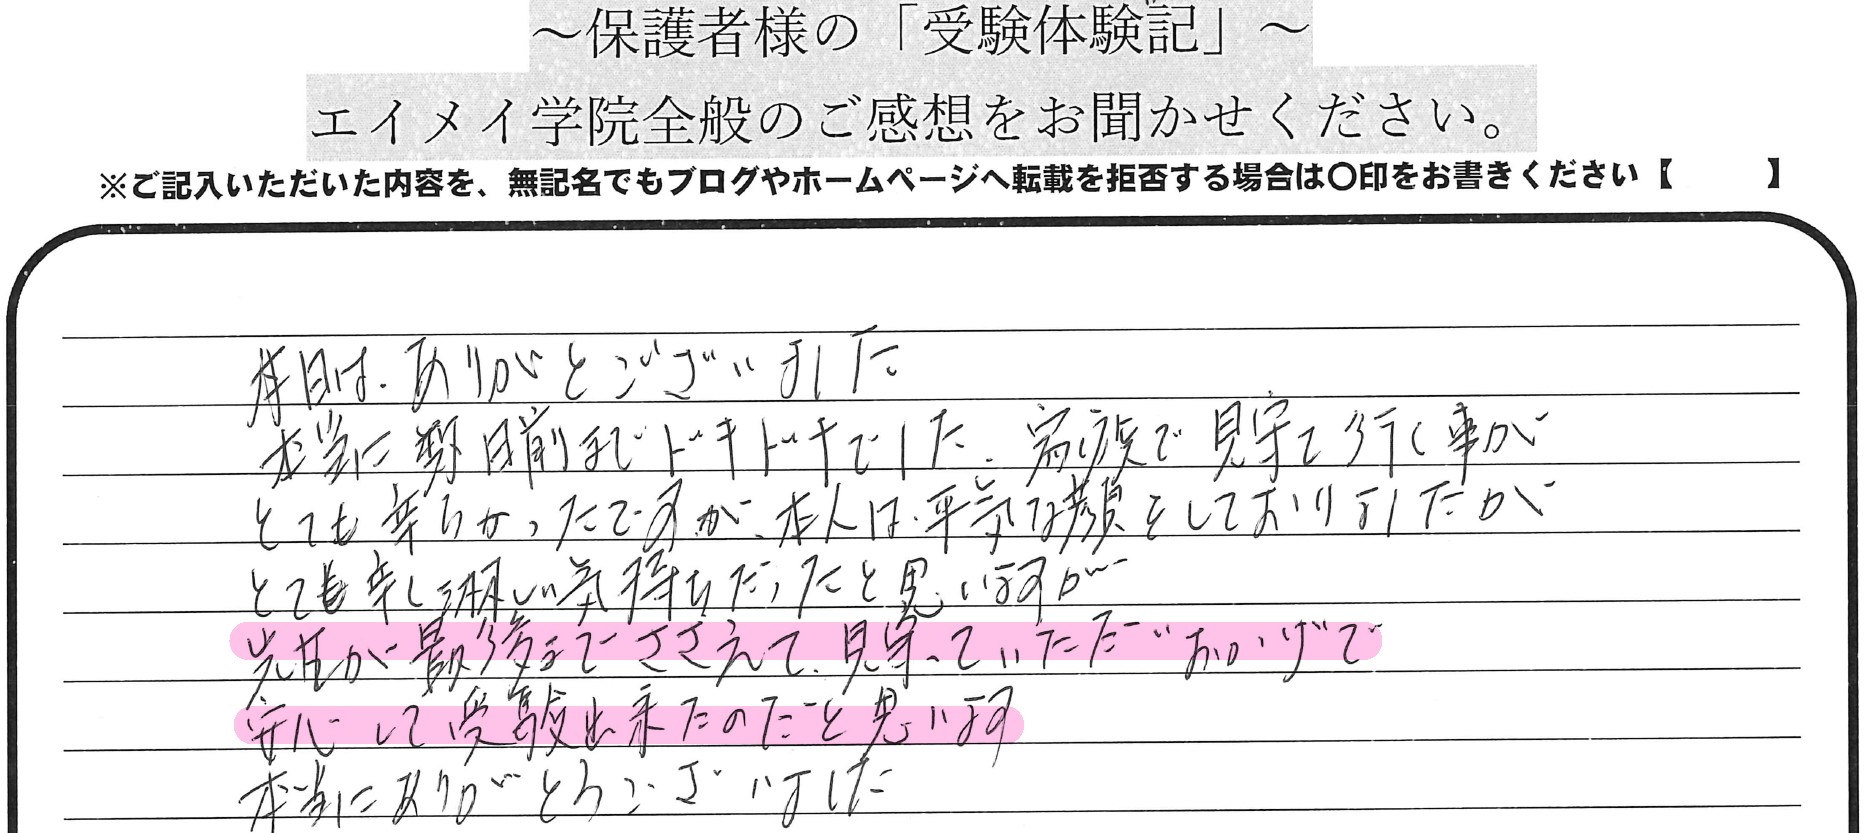 ～保護者様の「受験体験記」～
エイメイ学院全般のご感想をお聞かせください。
※ご記入いただいた内容を、無記名でもブログやホームページへ転載を拒否する場合は〇印をお書きください【 】
昨日は、ありがとございました
本当に 前日まで ドキドキでした、家族で 見守て行く事が
とても 辛らかったですが、本人は、平気な顔をしておりましたが
とても 辛し 淋しい気持ちだったと思いますが
先生が 最後まで ささえて、見守っていただ おかげで
安心して受験出来たのだと思います
本当に ありがとうございました